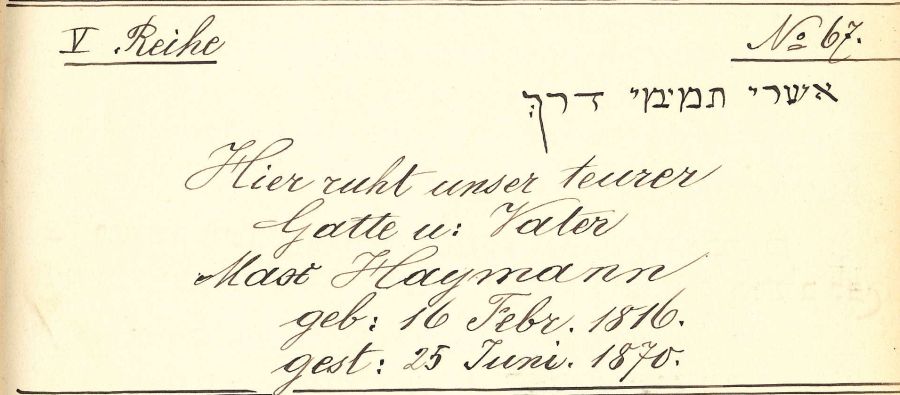 V. Reihe
No 67.
אשרי תמימי דרך
Hier ruht unser teurer
Gatte u: Vater
Max Haymann
geb: 16 Febr. 1816.
gest: 25 Juni. 1870.